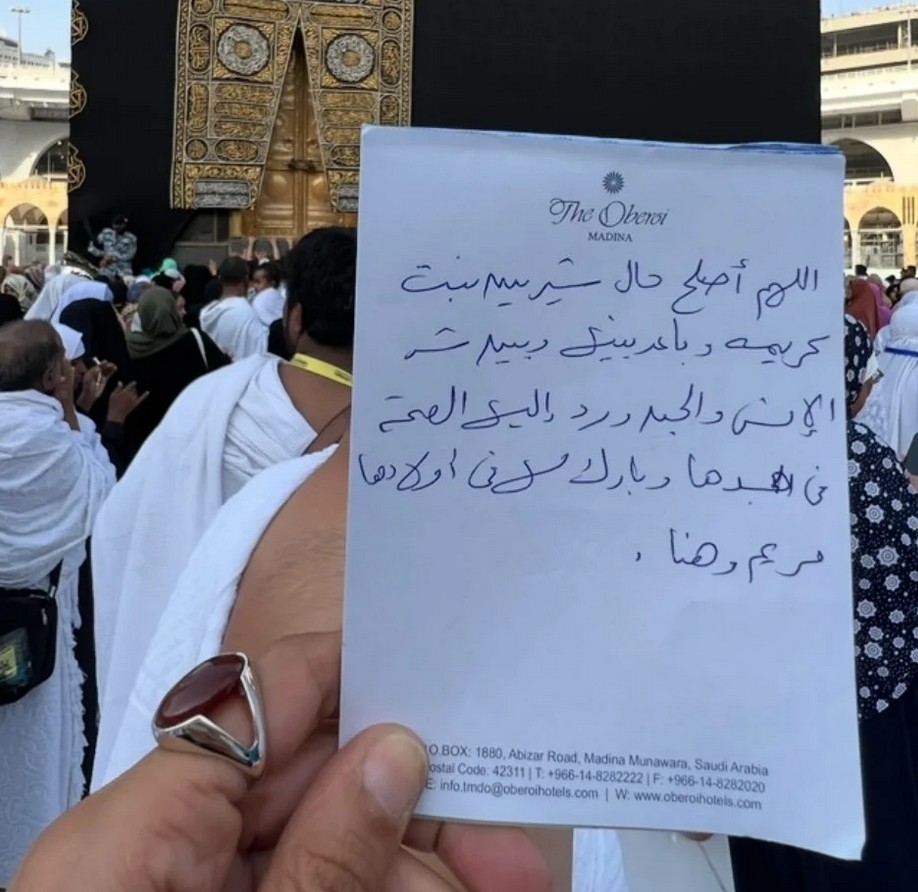 The Oberoi
MADINA
اللهم أصلح حال شيريهان بنت
كريمه وباعد بينها وبين شر
الإنس والجن ورد إليها الصحة
فى جسدها وبارك لها فى أولادها
مريم وهنا .
P.O.BOX: 1880, Abizar Road, Madina Munawara, Saudi Arabia
ostal Code: 42311 | T: +966-14-8282222 | F: +966-14-8282020
E: info.tmdo@oberoihotels.com | W: www.oberoihotels.com